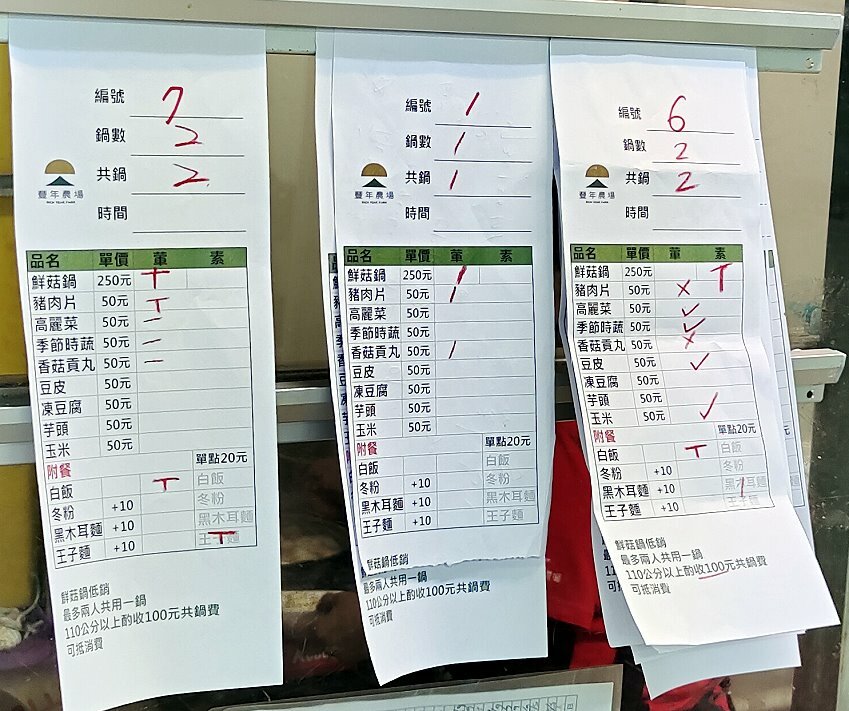 編號 7
鍋數 2
共鍋 2
豐年農場
RICH YEAR FARM
時間
品名 單價 葷 素
鮮菇鍋 250元 丅
豬肉片 50元 丅
高麗菜 50元 一
季節時蔬 50元 一
香菇貢丸 50元 一
豆皮 50元
凍豆腐 50元
芋頭 50元
玉米 50元
附餐 單點20元
白飯 丅 白飯
冬粉 +10 冬粉
黑木耳麵 +10 黑木耳麵
王子麵 +10 王子麵 丅
鮮菇鍋低銷
最多兩人共用一鍋
110公分以上酌收100元共鍋費
可抵消費
編號 1
鍋數 1
共鍋 1
豐年農場
RICH YEAR FARM
時間
品名 單價 葷 素
鮮菇鍋 250元 /
豬肉片 50元 /
高麗菜 50元
季節時蔬 50元
香菇貢丸 50元 /
豆皮 50元
凍豆腐 50元
芋頭 50元
玉米 50元
附餐 單點20元
白飯 白飯
冬粉 +10 冬粉
黑木耳麵 +10 黑木耳麵
王子麵 +10 王子麵
鮮菇鍋低銷
最多兩人共用一鍋
110公分以上酌收100元共鍋費
可抵消費
編號 6
鍋數 2
共鍋 2
豐年農場
RICH YEAR FARM
時間
品名 單價 葷 素
鮮菇鍋 250元 丅
豬肉片 50元 ×
高麗菜 50元 ✓
季節時蔬 50元 ✓
香菇貢丸 50元 ×
豆皮 50元 ✓
凍豆腐 50元
芋頭 50元
玉米 50元 ✓
附餐 單點20元
白飯 丅 白飯
冬粉 +10 冬粉
黑木耳麵 +10 黑木耳麵 /
王子麵 +10 王子麵
鮮菇鍋低銷
最多兩人共用一鍋
110公分以上酌收100元共鍋費
可抵消費